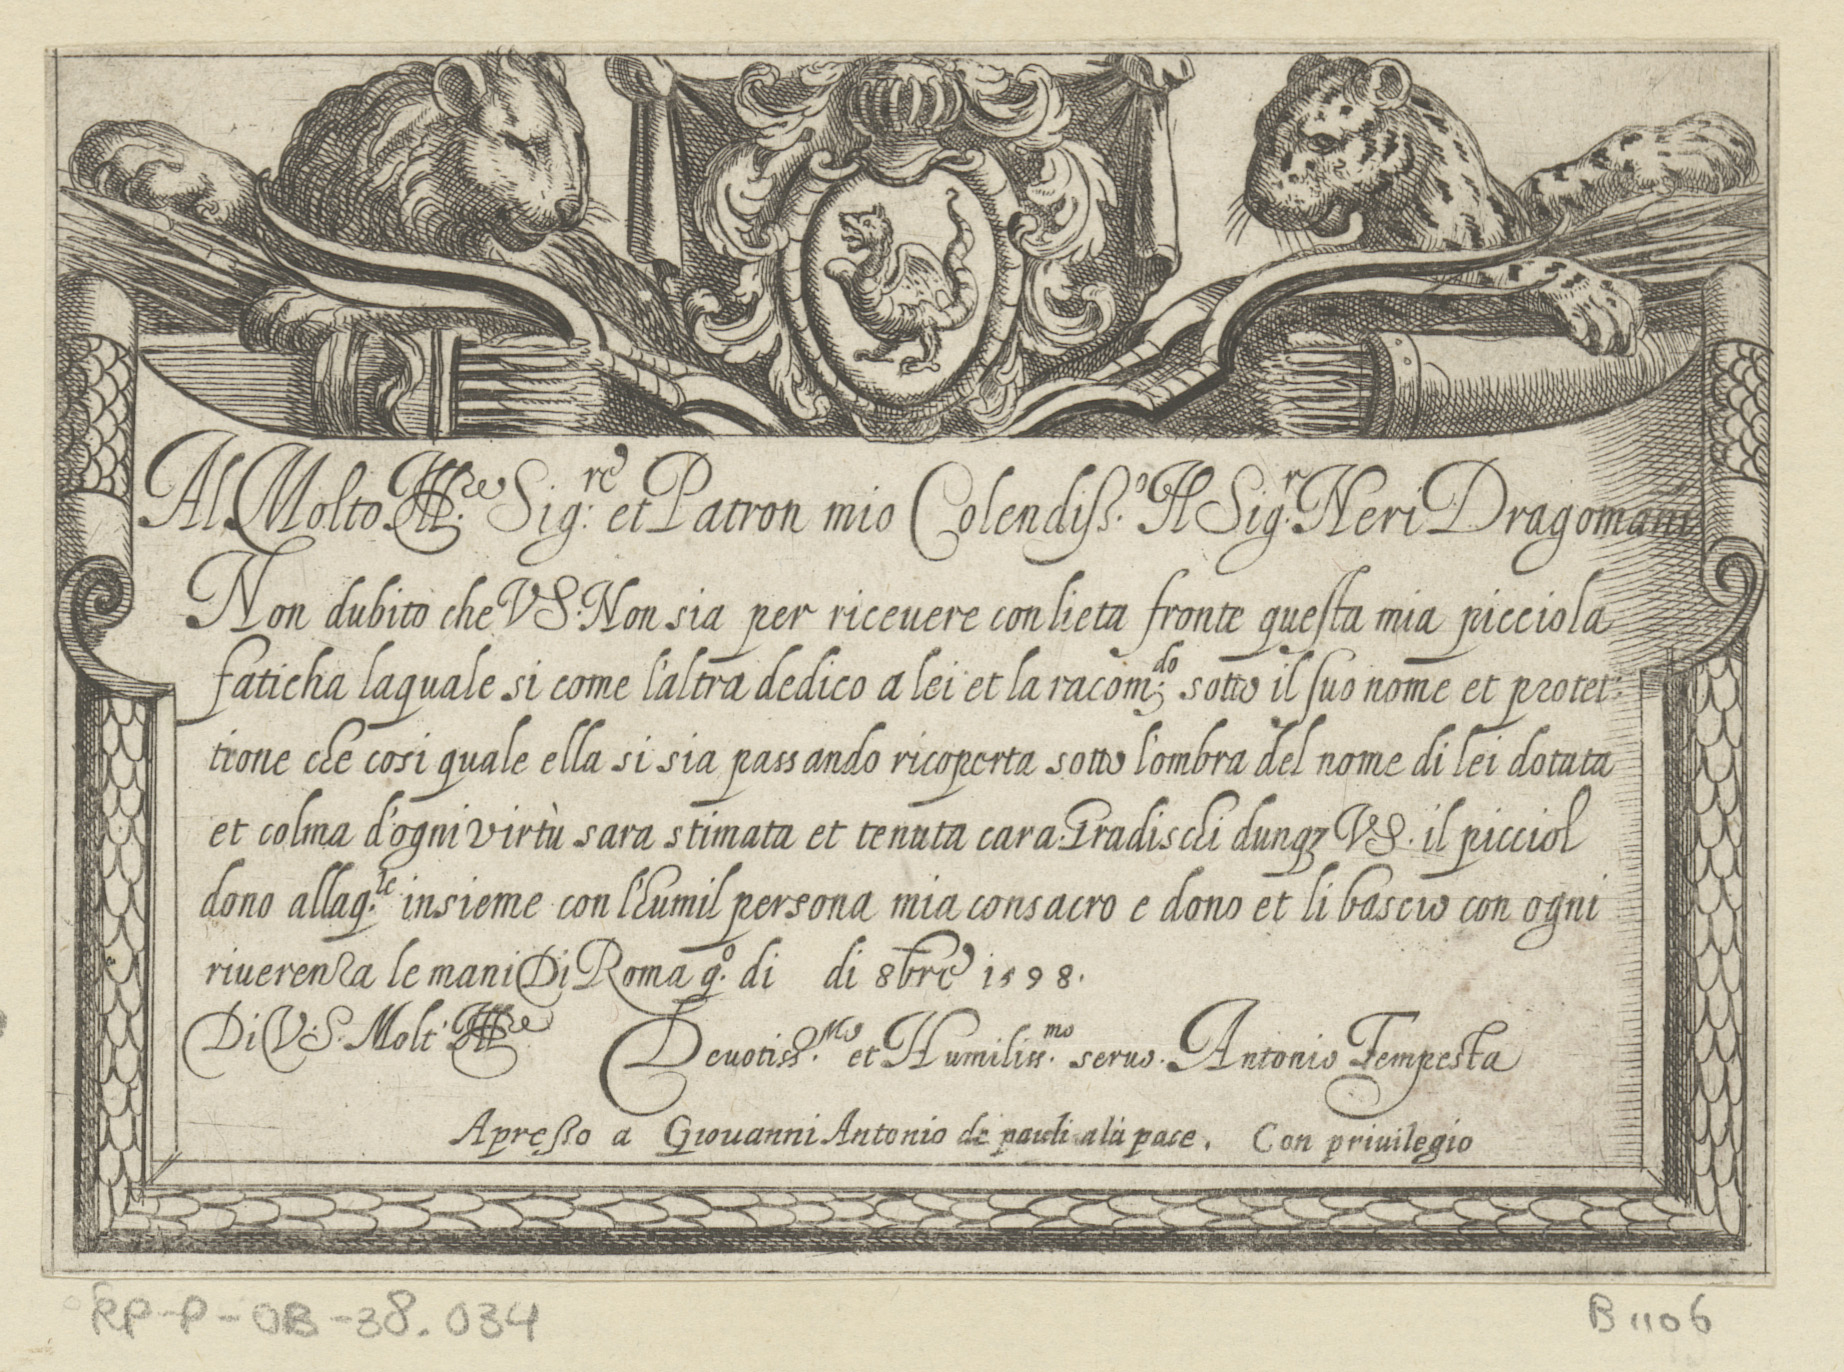 Al Molto Ill.re Sig.re et Patron mio Colendiss.o Il Sig.r Neri Dragomani
Non dubito che VS. Non sia per riceuere con lieta fronte questa mia picciola
faticha laquale si come l'altra dedico a lei et la racom.do sotto il suo nome et protet:
tione che cosi quale ella si sia passando ricoperta sotto l'ombra del nome di lei dotata
et colma d'ogni virtù sara stimata et tenuta cara. Gradischi dunq3 VS. il picciol
dono allaq.le insieme con l'humil persona mia consacro e dono et li bascio con ogni
riuerenza le mani Di Roma q.o di di 8bre 1598.
Di V.S. Molt' Ill.re Deuotiss.Mo et Humiliss.mo seruo. Antonio Tempesta
Apresso a Giouanni Antonio de pauli ala pace. Con priuilegio
RP-P-OB-38.034
B 1106